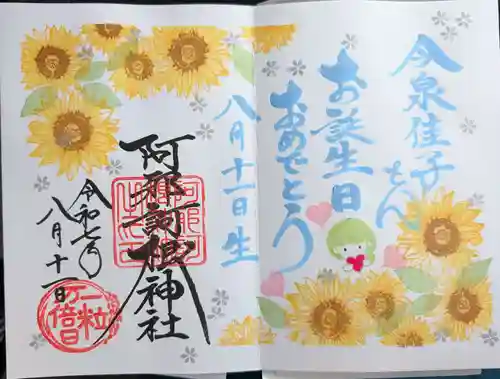 今泉佳子さん
お誕生日
おめでとう
八月十一日生
阿那訶根神社
令和七年
八月十一日
一粒
万倍
日